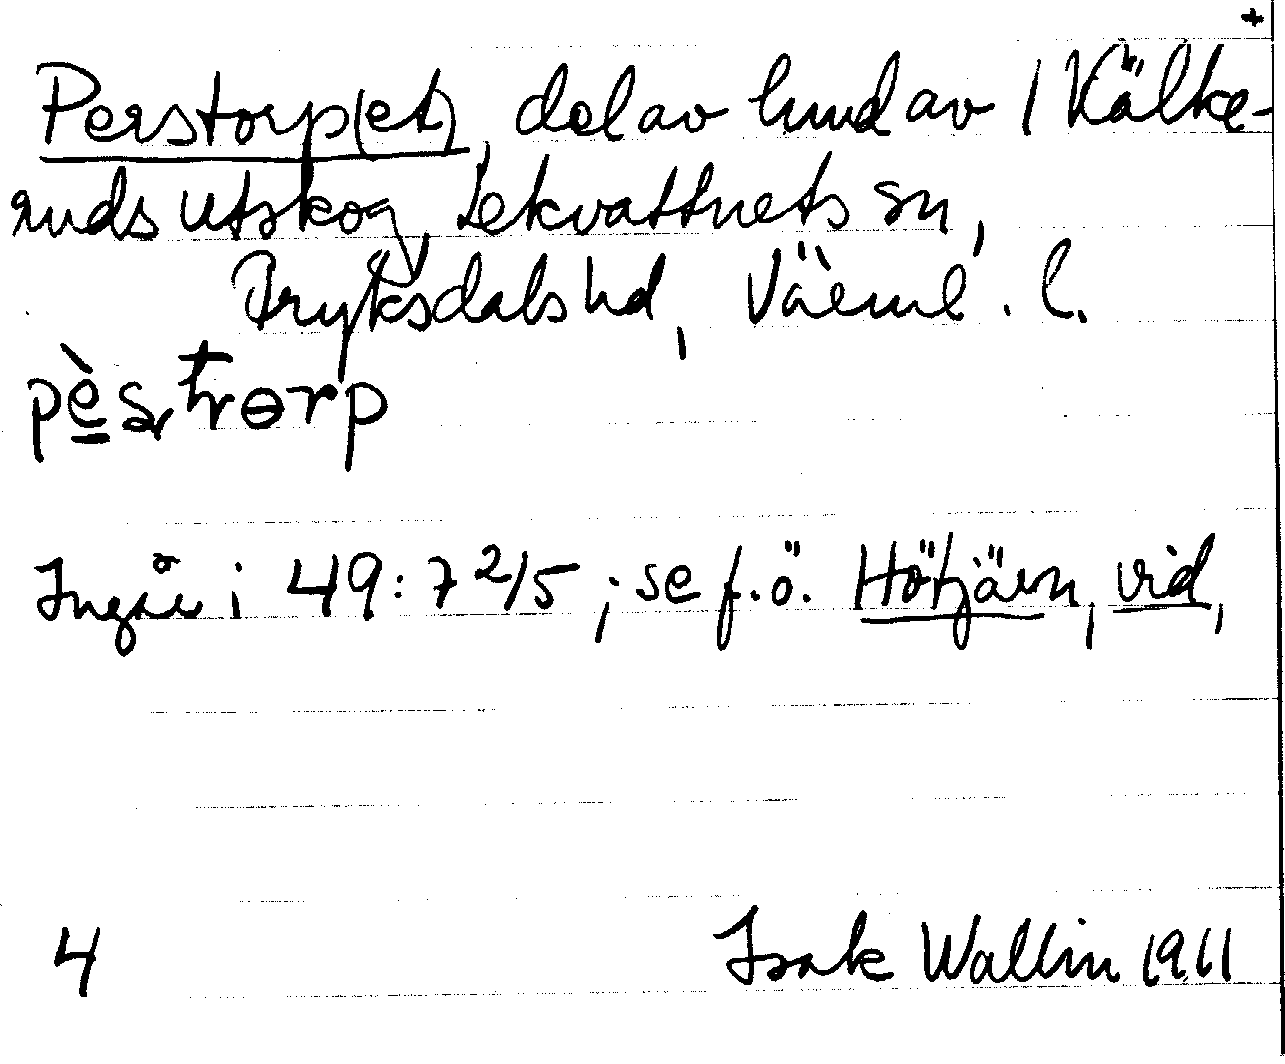 +
Perstorp(et), del av hmd av 1 Kälke-
ruds Utskog, Lekvattnets sn,
Fryksdals hd, Värml. l.
pèstrɵrp
Ingår i 49:7 2/5; se f.ö. Hötjärn, vid,
4 Isak Wallin 1911